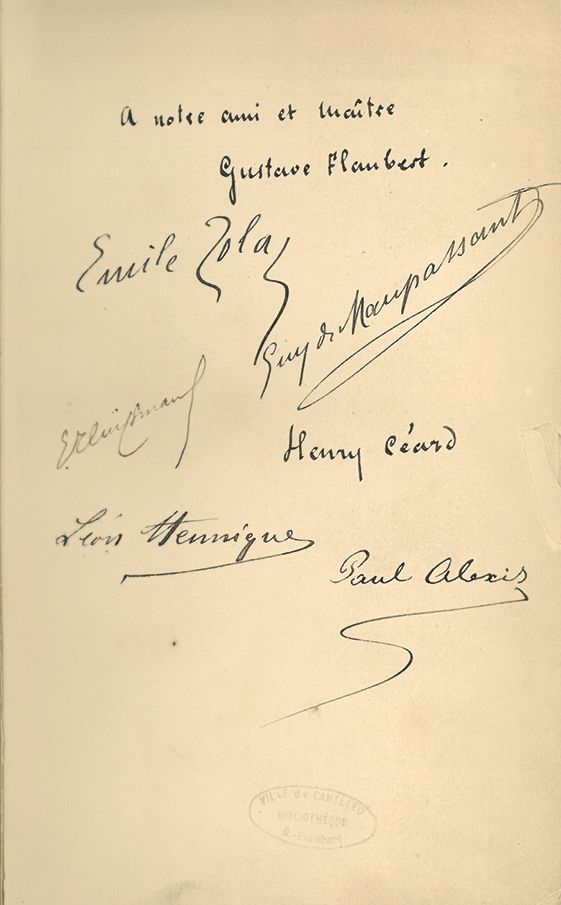 A notre ami et maître
Gustave Flaubert.
Emile Zola
Guy de Maupassant
Huÿsmans
Henry Céard
Léon Hennique
Paul Alexis
VILLE de CANTELEU
BIBLIOTHÈQUE
G. Flaubert